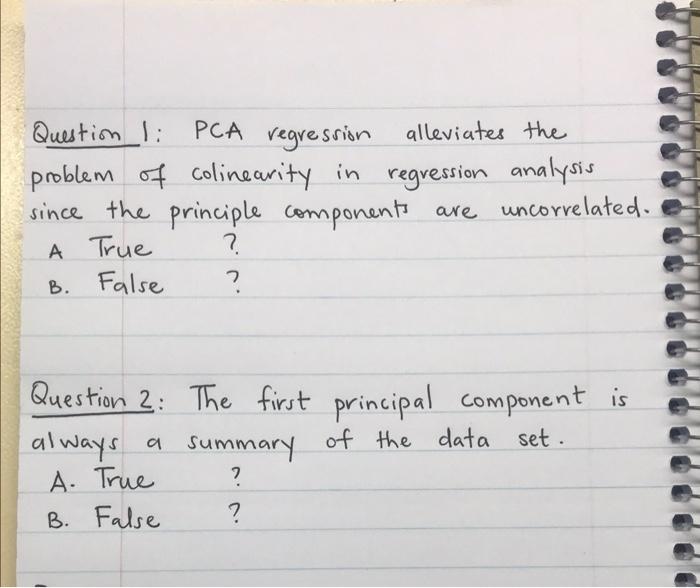 Question 1: PCA regression alleviates the
problem of colinearity in regression analysis
since the principle components are uncorrelated.
A True ?
B. False ?
Question 2: The first principal component is
always a summary of the data set.
A. True ?
B. False ?